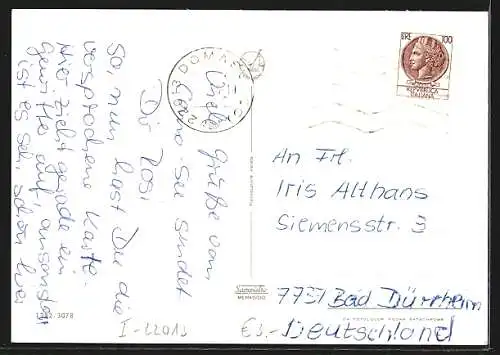 Viele Grüße vom
Como-See sendet
Dir Rosi
So, nun hast Du die
versprochene Karte.
Hier zieht gerade ein
Gewitter auf, ansonsten
ist es sehr schön hier
DOMASO
LIRE 100
REPUBBLICA
ITALIANA
An Frl.
Iris Althans
Siemensstr. 3
7737 Bad Dürrheim
Deutschland
MEMASCO
1342-3078
I-22013